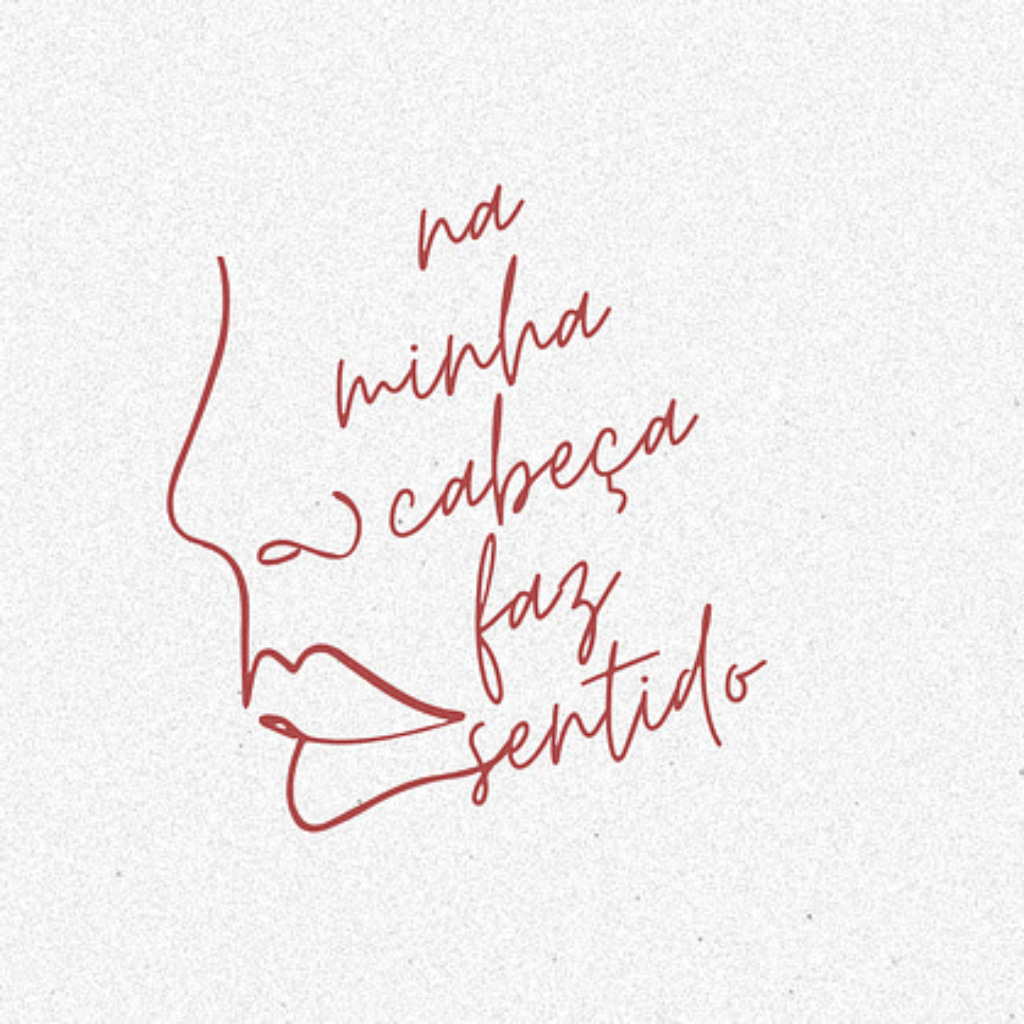 na
minha
cabeça
faz
sentido